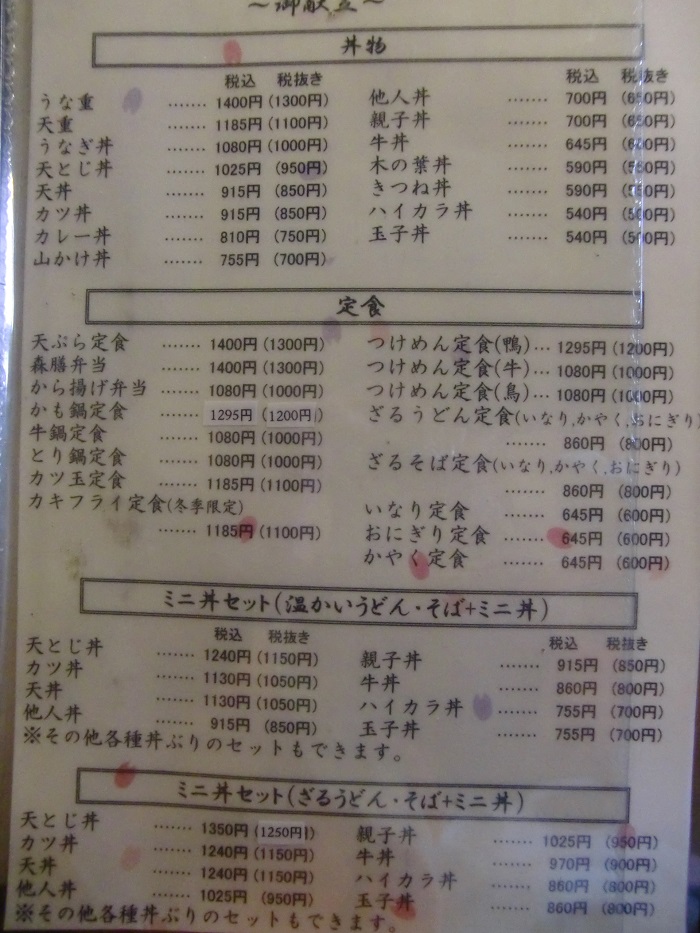 ～御献立～
丼物
税込 税抜き
うな重 ……… 1400円 (1300円)
天重 ……… 1185円 (1100円)
うなぎ丼 ……… 1080円 (1000円)
天とじ丼 ……… 1025円 (950円)
天丼 ……… 915円 (850円)
カツ丼 ……… 915円 (850円)
カレー丼 ……… 810円 (750円)
山かけ丼 ……… 755円 (700円)
税込 税抜き
他人丼 ……… 700円 (650円)
親子丼 ……… 700円 (650円)
牛丼 ……… 645円 (600円)
木の葉丼 ……… 590円 (550円)
きつね丼 ……… 590円 (550円)
ハイカラ丼 ……… 540円 (500円)
玉子丼 ……… 540円 (500円)
定食
天ぷら定食 ……… 1400円 (1300円)
森膳弁当 ……… 1400円 (1300円)
から揚げ弁当 ……… 1080円 (1000円)
かも鍋定食 1295円 (1200円)
牛鍋定食 ……… 1080円 (1000円)
とり鍋定食 ……… 1080円 (1000円)
カツ玉定食 ……… 1185円 (1100円)
カキフライ定食(冬季限定)
……… 1185円 (1100円)
つけめん定食(鴨)… 1295円 (1200円)
つけめん定食(牛)… 1080円 (1000円)
つけめん定食(鳥)… 1080円 (1000円)
ざるうどん定食(いなり,かやく,おにぎり)
……… 860円 (800円)
ざるそば定食(いなり,かやく,おにぎり)
……… 860円 (800円)
いなり定食 ……… 645円 (600円)
おにぎり定食 ……… 645円 (600円)
かやく定食 ……… 645円 (600円)
ミニ丼セット(温かいうどん・そば+ミニ丼)
税込 税抜き
天とじ丼 ……… 1240円 (1150円)
カツ丼 ……… 1130円 (1050円)
天丼 ……… 1130円 (1050円)
他人丼 ……… 915円 (850円)
税込 税抜き
親子丼 ……… 915円 (850円)
牛丼 ……… 860円 (800円)
ハイカラ丼 ……… 755円 (700円)
玉子丼 ……… 755円 (700円)
※その他各種丼ぶりのセットもできます。
ミニ丼セット(ざるうどん・そば+ミニ丼)
天とじ丼 ……… 1350円 (1250円)
カツ丼 ……… 1240円 (1150円)
天丼 ……… 1240円 (1150円)
他人丼 ……… 1025円 (950円)
親子丼 ……… 1025円 (950円)
牛丼 ……… 970円 (900円)
ハイカラ丼 ……… 860円 (800円)
玉子丼 ……… 860円 (800円)
※その他各種丼ぶりのセットもできます。